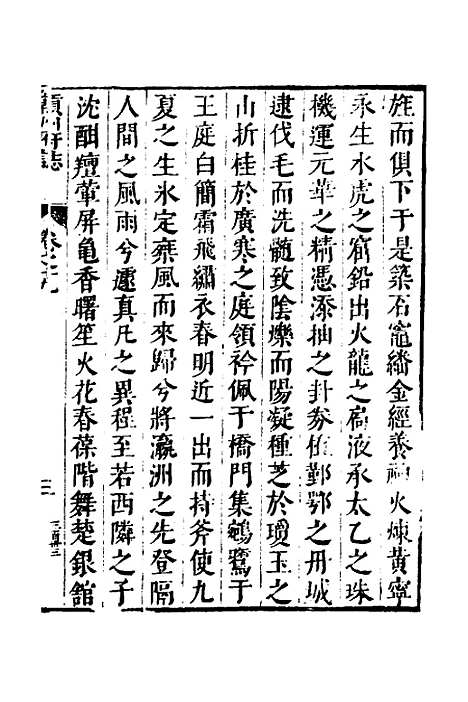 旌而俱下于是築石竈繙金經養神火煉黃寧
永生水虎之窟鉛出火龍之扃液承太乙之珠
機運元華之精憑添抽之卦劵値鄞鄂之丹城
逮伐毛而洗髓致陰爍而陽凝種芝於瓊玉之
山折桂於廣寒之庭領衿佩于橋門集鵷鷺于
王庭白簡霜飛繡衣春明近一出而持斧使九
夏之生氷定薤風而來歸兮將瀛洲之先登隔
人間之風雨兮遽真凡之異程至若西隣之子
沈酣羶葷屏亀香曙笙火花春葆階舞楚銀舘
府志
卷之
三